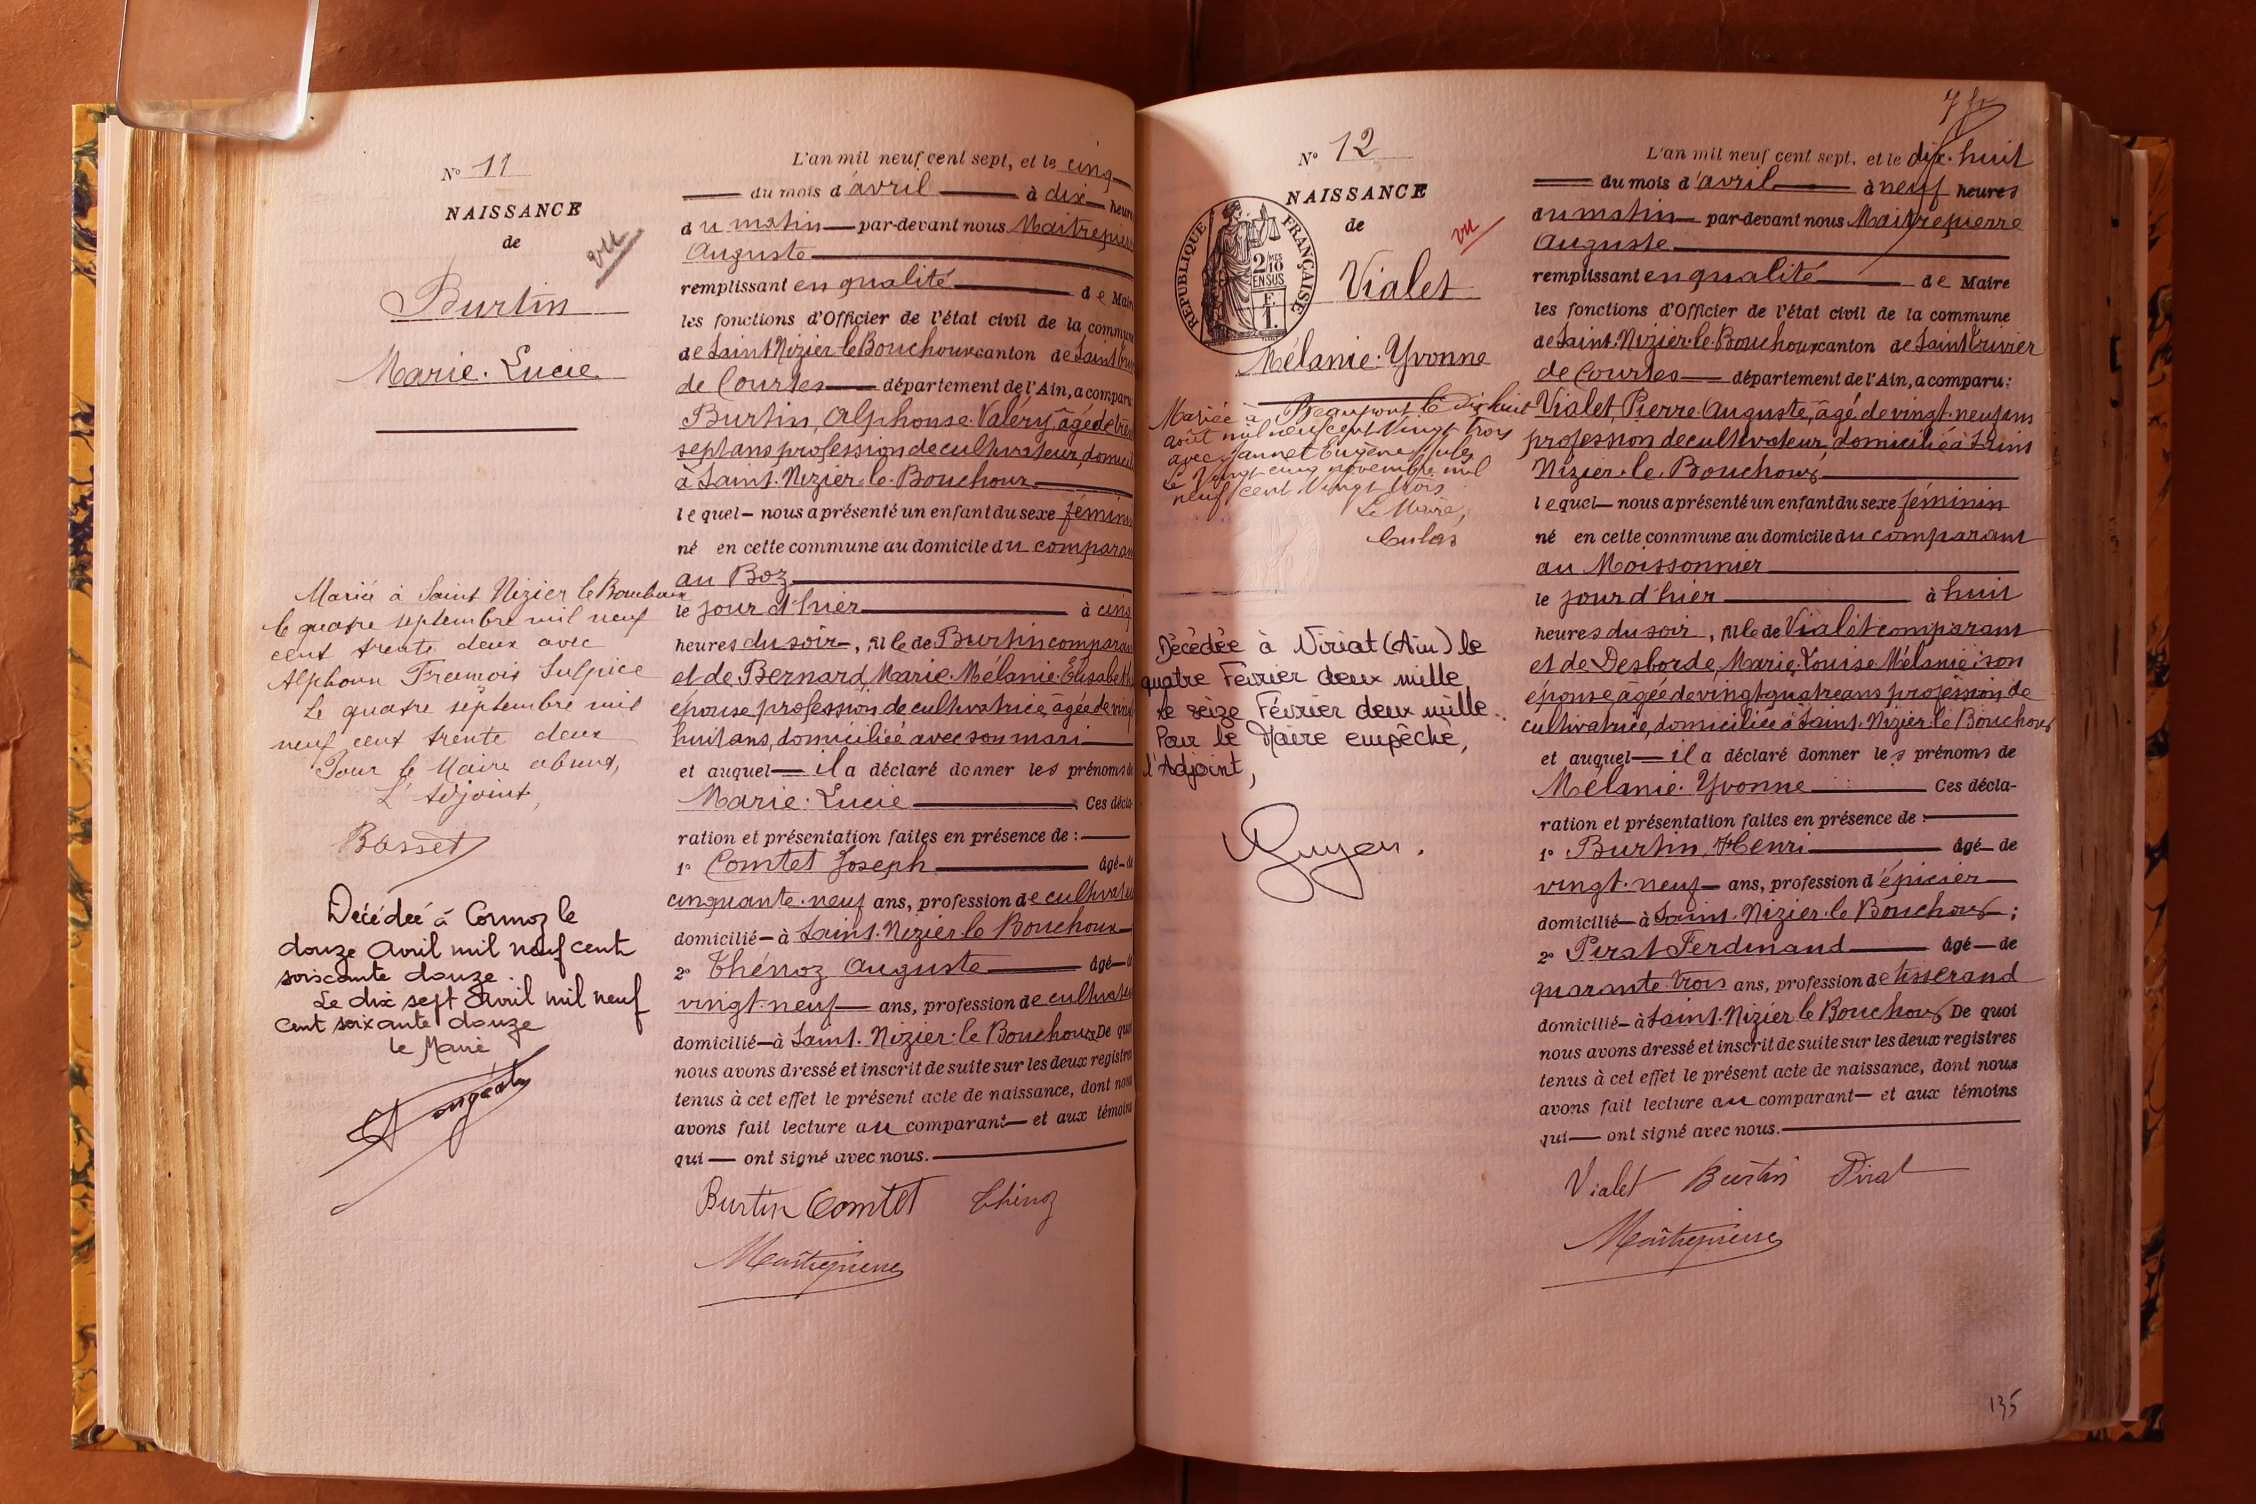 N° 11
NAISSANCE
de
vu
Burtin
Marie. Lucie
Mariée à Saint Nizier le Bouchoux
le quatre septembre mil neuf
cent trente deux avec
Alphonse François Sulpice
Le quatre septembre mil
neuf cent trente deux
Pour le Maire absent,
L'Adjoint,
Basset
Décédée à Cormoz le
douze avril mil neuf cent
soixante douze.
Le dix sept avril mil neuf
cent soixante douze
le Maire
L'an mil neuf cent sept, et le cinq
du mois d'avril à dix heures
du matin par-devant nous Maitrepierre
Auguste
remplissant en qualité de Maire
les fonctions d'Officier de l'état civil de la commune
de Saint Nizier le Bouchoux canton de Saint Triv
de Courtes département de l'Ain, a comparu:
Burtin, Alphonse. Valéry, âgé de tren
sept ans profession de cultivateur, domicil
à Saint. Nizier. le. Bouchoux
lequel nous a présenté un enfant du sexe féminin
né en cette commune au domicile du comparant
au Boz
le jour d'hier à cinq
heures du soir, fille de Burtin comparant
et de Bernard, Marie. Mélanie. Elisabeth
épouse, profession de cultivatrice, âgée de vingt
huit ans, domiciliée avec son mari
et auquel il a déclaré donner les prénoms de
Marie. Lucie Ces décla-
ration et présentation faites en présence de :
1° Comtet Joseph âgé de
cinquante. neuf ans, profession de cultivateu
domicilié à Saint. Nizier le Bouchoux
2° Thénoz Auguste âgé d
vingt. neuf ans, profession de cultivateu
domicilié à Saint. Nizier. le Bouchoux De quoi
nous avons dressé et inscrit de suite sur les deux registre
tenus à cet effet le présent acte de naissance, dont nous
avons fait lecture au comparant et aux témoins
qui ont signé avec nous.
Burtin Comtet Thénoz
Maitrepierre
N° 12
NAISSANCE
de
vu
RÉPUBLIQUE FRANÇAISE
2/10 MES
EN SUS
F.
1.
Vialet
Mélanie. Yvonne
Mariée à Beaupont le Dix huit
août mil neuf cent Vingt trois
avec Jannet Eugène Jules
Le Vingt cinq novembre mil
neuf cent Vingt trois
Le Maire,
Décédée à Viriat (Ain) le
quatre Février deux mille
le seize Février deux mille.
Pour le Maire empêché,
l'Adjoint,
Guyon.
L'an mil neuf cent sept, et le dix. huit
du mois d'avril à neuf heures
du matin par-devant nous Maitrepierre
Auguste
remplissant en qualité de Maire
les fonctions d'Officier de l'état civil de la commune
de Saint. Nizier. le. Bouchoux canton de Saint Trivier
de Courtes département de l'Ain, a comparu:
Vialet, Pierre Auguste, âgé de vingt. neuf ans
profession de cultivateur, domicilié à Saint
Nizier. le. Bouchoux
lequel nous a présenté un enfant du sexe féminin
né en cette commune au domicile du comparant
au Moissonnier
le jour d'hier à huit
heures du soir, fille de Vialet comparant
et de Desborde, Marie. Louise Mélanie son
épouse, âgée de vingt-quatre ans profession, de
cultivatrice, domiciliée à Saint. Nizier. le Bouchoux
et auquel il a déclaré donner les prénoms de
Mélanie. Yvonne Ces décla-
ration et présentation faites en présence de :
1° Burtin, Henri âgé de
vingt. neuf ans, profession d'épicier
domicilié à Saint. Nizier. le Bouchoux ;
2° Pirat Ferdinand âgé de
quarante. trois ans, profession de tisserand
domicilié à Saint. Nizier le Bouchoux De quoi
nous avons dressé et inscrit de suite sur les deux registres
tenus à cet effet le présent acte de naissance, dont nous
avons fait lecture au comparant et aux témoins
qui ont signé avec nous.
Vialet Burtin Pirat
Maitrepierre
135